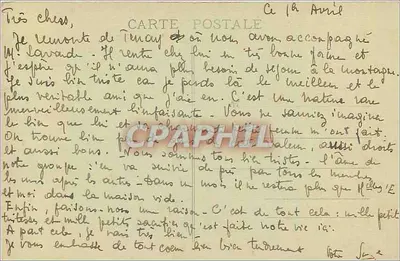 CARTE POSTALE
Ce 1er Avril
Très chers,
Je remonte de Tenay où nous avons accompagné
M. Lavarde. Il rentre chez lui en très bonne forme et
j'espère qu'il n'aura plus besoin de séjour à la montagne.
Je suis bien triste car je perds là le meilleur et le
plus véritable ami que j'aie eu. C'est une nature rare
merveilleusement bienfaisante. Vous ne sauriez imaginer
le bien que lui et m'ont fait.
CPARPHIL
On trouve bien aussi droits
et aussi bons. Nous sommes tous bien tristes. L'âme de
notre groupe s'en va suivie de près par tous les membres
les uns après les autres. Dans un mois il ne restera plus que
et moi dans la maison vide.
Enfin, faisons-nous une raison. C'est de tout cela : mille petites
tristesses et mille petits sacrifices qu'est faite notre vie ici.
A part cela, je vais très bien.
Je vous embrasse de tout coeur bien bien tendrement